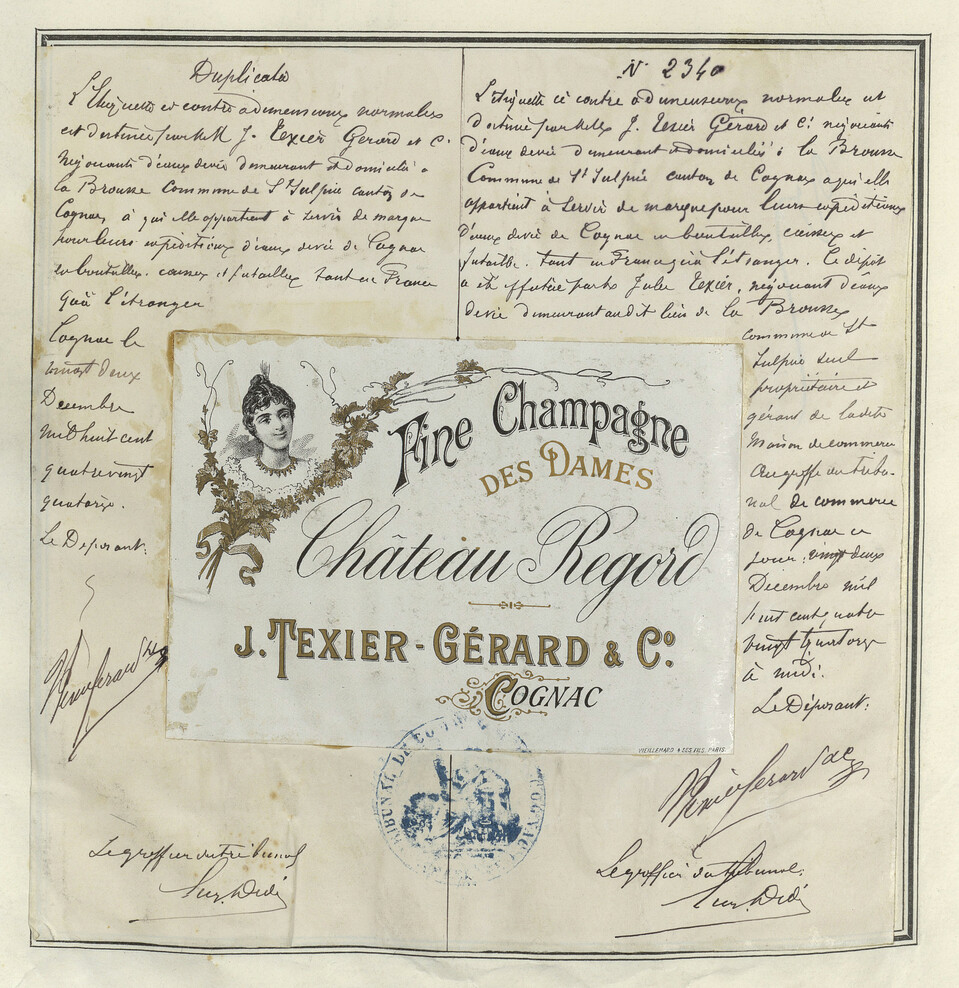 Duplicata
L'Etiquette ci contre a dimensions normales
est destinée par MM J. Texier Gérard et Cie
négociants d'eaux de vie demeurant et domiciliés à
la Brousse Commune de St Sulpice canton de
Cognac, à qui elle appartient à servir de marque
pour leurs expéditions d'eaux de vie de Cognac
en bouteilles, caisses et futailles tant en France
qu'à l'étranger
Cognac le
vingt deux
Décembre
mil huit cent
quatre vingt
quatorze.
Le Déposant:
Texier Gérard & Cie
Le greffier du tribunal
N° 2340
L'étiquette ci contre a dimensions normales est
destinée par MM J. Texier Gérard et Cie négociants
d'eaux de vie demeurant et domiciliés à la Brousse
Commune de St Sulpice canton de Cognac a qui elle
appartient à servir de marque pour leurs expéditions
d'eaux de vie de Cognac en bouteilles, caisses et
futailles tant en France qu'à l'étranger. Ce dépôt
a été effectué par Mr Jules Texier, négociant d'eaux
de vie demeurant au dit lieu de la Brousse
commune de St
Sulpice seul
propriétaire et
gérant de ladite
maison de commerce
Au greffe du tribu-
nal de commerce
de Cognac ce
jour: vingt deux
Décembre mil
huit cent quatre
vingt quatorze
à midi.
Le Déposant:
Texier Gérard & Cie
Le greffier du tribunal.
Fine Champagne
DES DAMES
Château Regord
J. TEXIER-GÉRARD & Co.
COGNAC
VIEILLEMARD & SES FILS, PARIS.
TRIBUNAL DE COMMERCE COGNAC